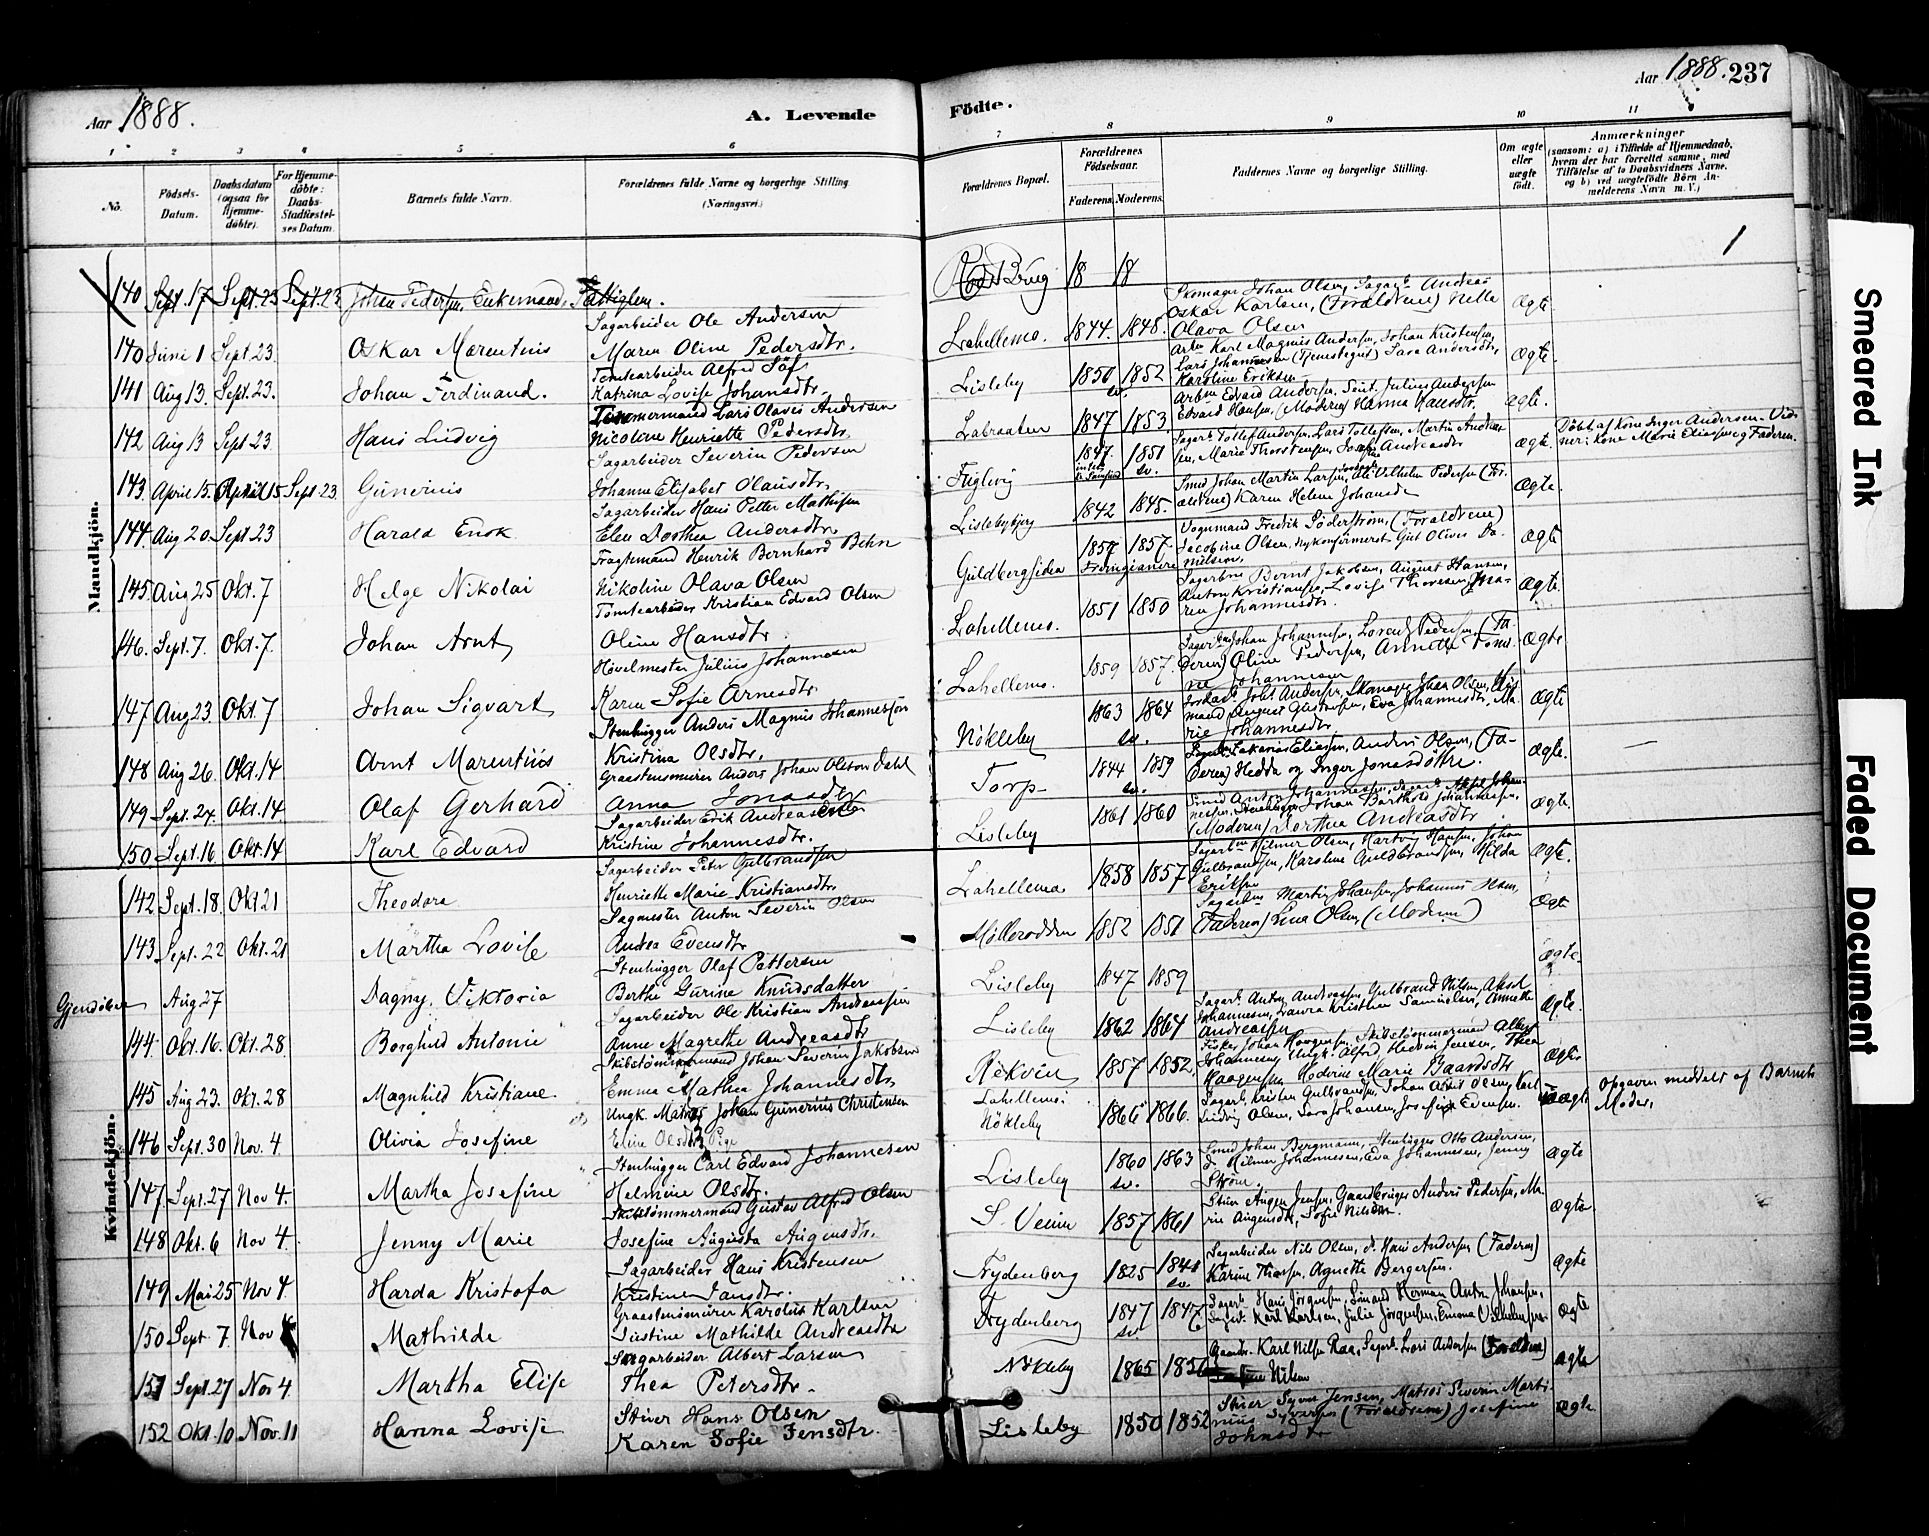 Aar 1888.
A. Levende
Födte.
Aar 1888. 237
1 2 3 4 5 6 7 8 9 10 11
No.
Födsels-Datum.
Daabsdatum (ogsaa for Hjemme-döbte).
For Hjemme-döbte: Daabs-Stadfæstel-ses Datum.
Barnets fulde Navn.
Forældrenes fulde Navne og borgerlige Stilling. (Næringsvei.)
Forældrenes Bopæl.
Forældrenes Födselsaar.
Faderens Moderens
Faddernes Navne og borgerlige Stilling.
Om ægte eller uægte födt.
Anmærkninger
(saasom: a) i Tilfælde af Hjemmedaab, hvem der har forrettet samme, med Tilföielse af to Daabsvidners Navne, og b) ved uægtefödte Börn Anmelderens Navn m. V.)
Mandkjön.
140 Sept. 17 Sept. 23 Sept. 23 Johan Pedersen, Enkemand,
18 18
140 Juni 1 Sept. 23 Oskar Marentius
Sagarbeider Ole Andersen
Maren Oline Pedersdtr.
Lahellemo. 1844. 1848. Ægte.
Skomager Johan Olsen, Sagarb. Andreas
Oskar Karlsen, (Forældrene) Nella
Olava Olsen
141 Aug 13. Sept. 23. Johan Ferdinand.
Tomtearbeider Alfred
Katrina Lovise Johansdtr.
Lisleby 1850 1852 Ægte.
Karl Magnus Andersen, Johan Kristensen,
Lars Johannesen Sara Andersdtr,
Karoline Eriksen
142 Aug 13 Sept 23 Hans Ludvig
Tömmermand Lars Olaves Andersen
Nicoline Henriette Pedersdtr.
Labraaten 1847 1853 ægte.
Edvard Andersen, Julius Andersen
Edvard Hansen, (Moderen) Hanna Hansdtr.
143. April 15. April 15 Sept. 23 Gunerius
Sagarbeider Severin Pedersen
Johanne Elisabet Olausdtr.
1847 1851 ægte.
Marie Thorstensen, Andreasdtr
Döbt af Kone Inger Andersen. Vid-
ner: Kone Marie Eliasen og Faderen.
144. Aug 20. Sept 23 Harald Enok
Sagarbeider Hans Petter Mathisen
Elen Dorthea Andersdtr.
Lislebybjerg 1842 1845. Ægte.
Smed Johan Martin Larsen, Ole Vilhelm Pedersen (For-
ældrene) Karen Helene
145 Aug 25 Okt. 7 Helge Nikolai
Fragtemand Henrik Bernhard Behn
Nikoline Olava Olsen
Guldbergsiden 1857 1857. Ægte
Vognmand Fredrik Söderström, (Forældrene)
Jacobine Olsen, nykonfirmeret Gut Oliver Da-
nielsen,
146. Sept. 7. Okt. 7. Johan Arnt
Tomtearbeider Kristian Edvard Olsen
Oline Hansdtr.
Lahellemo. 1851 1850 Ægte.
Bernt Jakobsen, August Hansen,
Anton Kristiansen, Lovise Thoresen, Ma-
ren Johannesdtr.
147 Aug 23. Okt. 7 Johan Sigvart
Hövelmester Julius Johannesen
Karen Sofie Arnesdtr.
Lahellemo. 1859 1857. Ægte
Johan Johannesen, Lorents Pedersen, (Fa-
deren) Oline Pedersen, Annette
Johannesen
148 Aug 26. Okt. 14 Arnt Marentius
Stenhugger Anders Magnus Johannesson
Kristina Olsdtr.
Nökleby 1863 1864 Ægte
Andersen, Skomager Johan Olsen,
mand August Gustavsen, Eva Johannesdtr, Ma-
rie Johannesdtr
149 Sept. 24. Okt. 14. Olaf Gerhard
Graastensmurer Anders Johan Olsson Dahl
Anna Jonasdtr
Torp 1844 1859 ægte.
Sakarias Eliasen, Anders Olsen, (Fa-
deren) Hedda og Inger Jonasdöttre.
150 Sept. 16 Okt. 14 Karl Edvard
Sagarbeider Erik Andreassen
Kristine Johannesdtr.
Lisleby 1861 1860 ægte.
Smed Anton Johannessen,
Johan Barthold Johannessen,
(Moderen) Dorthea Andreasdtr
Kvindekjön.
142 Sept. 18. Okt 21 Theodora
Sagarbeider Peter Gulbrandsen
Henriette Marie Kristiansdtr.
Lahellemo 1858 1857 ægte.
Hilmer Olsen, Hartvig Hansen, Johan
Gulbrandsen, Karoline Guldbrandsen, Hilda
Eriksen
143 Sept. 22 Okt. 21 Martha Lovise
Sagmester Anton Severin Olsen
Andrea Evensdtr.
Möllerodden 1852 1851 Ægte
Martin Johansen, Johannes Olsen,
(Faderen) Lina Olsen, (Moderen)
Gjendöbt Aug 27 Dagny Viktoria
Stenhugger Olaf Pettersen
Berthe Gurine Knudsdatter
Lisleby 1847 1859 ægte.
144. Okt. 16. Okt. 28 Borghild Antonie
Sagarbeider Ole Kristian Andreassen
Anne Magrethe Andreasdtr
Lisleby 1862 1864 Ægte.
Sagarb. Anton Andreassen, Gulbrand Nilsen, Aksel
Johannesen, Laura Kristine Samuelsen, Annette
Andreassen
145 Aug 23. Okt. 28 Magnhild Kristiane.
Skibstömmermand Johan Severin Jakobsen
Emma Mathea Johannesdtr.
Rökvin 1857 1852. Ægte
Fisker Johan Haagensen, Skibstömmermand Albert
Johannesen, Ungk. Alfred, Hedvin Jensen, Thea
Haagensen Hedvine Marie Baardsdtr
146 Sept. 30 Nov. 4. Olivia Josefine
Ungk. Matros Johan Gunerius Christensen
Eline Olsdtr Pige
Lahellemo. Nökleby 1866 1866. uægte
Sagarb. Kristen Gulbrandsen, Johan Arnt Olsen, Karl
Ludvig Olsen, Sara Johansen, Josefine Evensen.
Opgaven meddelt af Barnets
Moder.
147. Sept. 27 Nov 4. Martha Josefine
Stenhugger Carl Edvard Johannesen
Helmine Olsdtr.
Lisleby 1860 1863 Ægte
Smed Johan Bergmann, Stenhugger Otto Andersen,
d. Hilmer Johannesen, Eva Johannesen, Jenny
Ström.
148 Okt. 6 Nov 4. Jenny Marie
Skibstömmermand Gustav Alfred Olsen
Josefine Augusta Augensdtr.
1857 1861 ægte
Augen Jensen, Gaardbruger Anders Pedersen, Ma-
rie Augensdtr, Sofie Nilsen.
149 Mai 25 Nov 4. Harda Kristofa
Sagarbeider Hans Kristensen
Kristine Jansdtr.
Nydenberg 1825 1841 Ægte
Sagarbeider Nils Olsen, d. Hans Andersen (Faderen)
Karine Thorsen, Agnette Bergersen.
150 Sept. 7. Nov 4 Mathilde
Graastensmurer Karolus Karlsen
Justine Mathilde Andreasdtr
Nydenberg 1847 1847 Ægte
Sagarb. Hans Jörgensen, Herman Anton Johansen,
Karl Karlsen, Julie Jörgensen, Emma Vilhelmsen
151 Sept. 27 Nov 4. Martha Elise
Sagarbeider Albert Larsen
Thea Petersdtr.
Nökleby 1865 1856 ægte
Karl Nilsen Raa, Sagarb. Lars Andersen (Forældrene)
Nilsen
152 Okt. 10 Nov. 11 Hanna Lovise
Stuer Hans Olsen
Karen Sofie Jensdtr.
Lisleby 1850 1852 ægte.
Jensen, Matros Severin Marti-
nius Syversen (Forældrene) Josefine
Johnsdtr
Smeared Ink
Faded Document